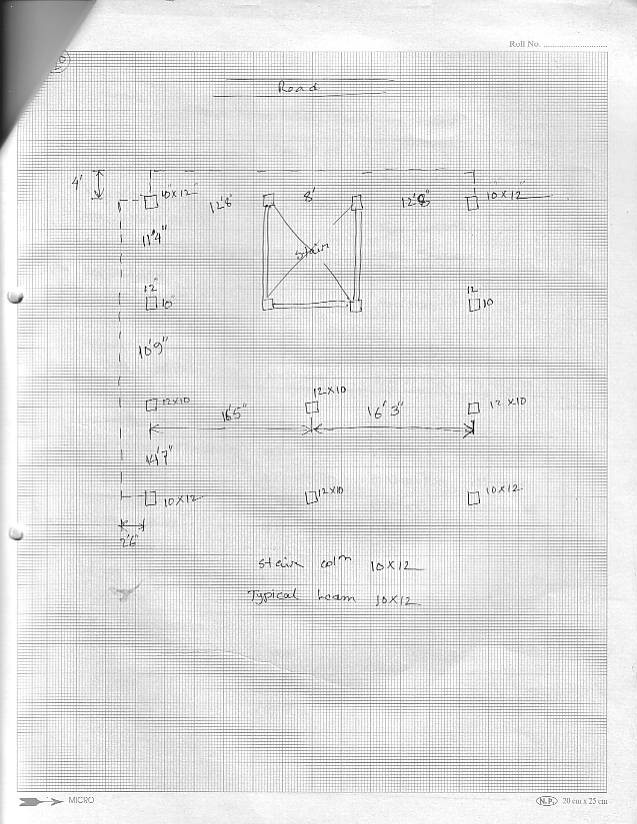 Roll No.
Road
4'
10"X12"
12'8"
8'
12'8"
10"X12"
11'4"
Stair
12"
10"
12
10
10'9"
12X10
12X10
12X10
16'5"
16'3"
14'7"
10X12
12X10
10X12
2'6"
Stair colm 10X12
Typical beam 10X12
MICRO
N.P. 20 cm x 25 cm